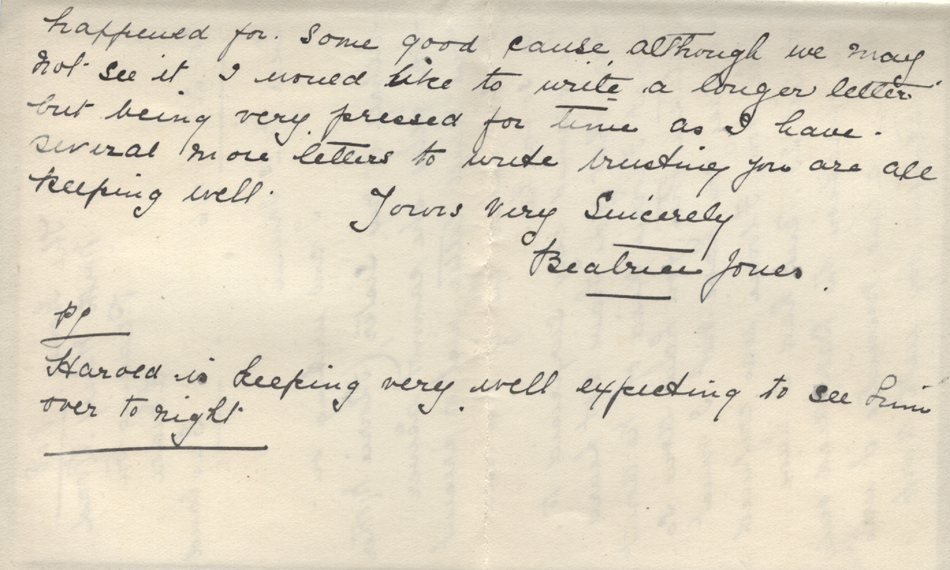 happened for. some good cause although we may
not see it I woued like to write a longer letter
but being very pressed for time as I have.
several more letters to write trusting you are all
keeping well.
Yours Very Sincerely
Beatrice Jones.
PS
Harold is keeping very well expecting to see him
over to night